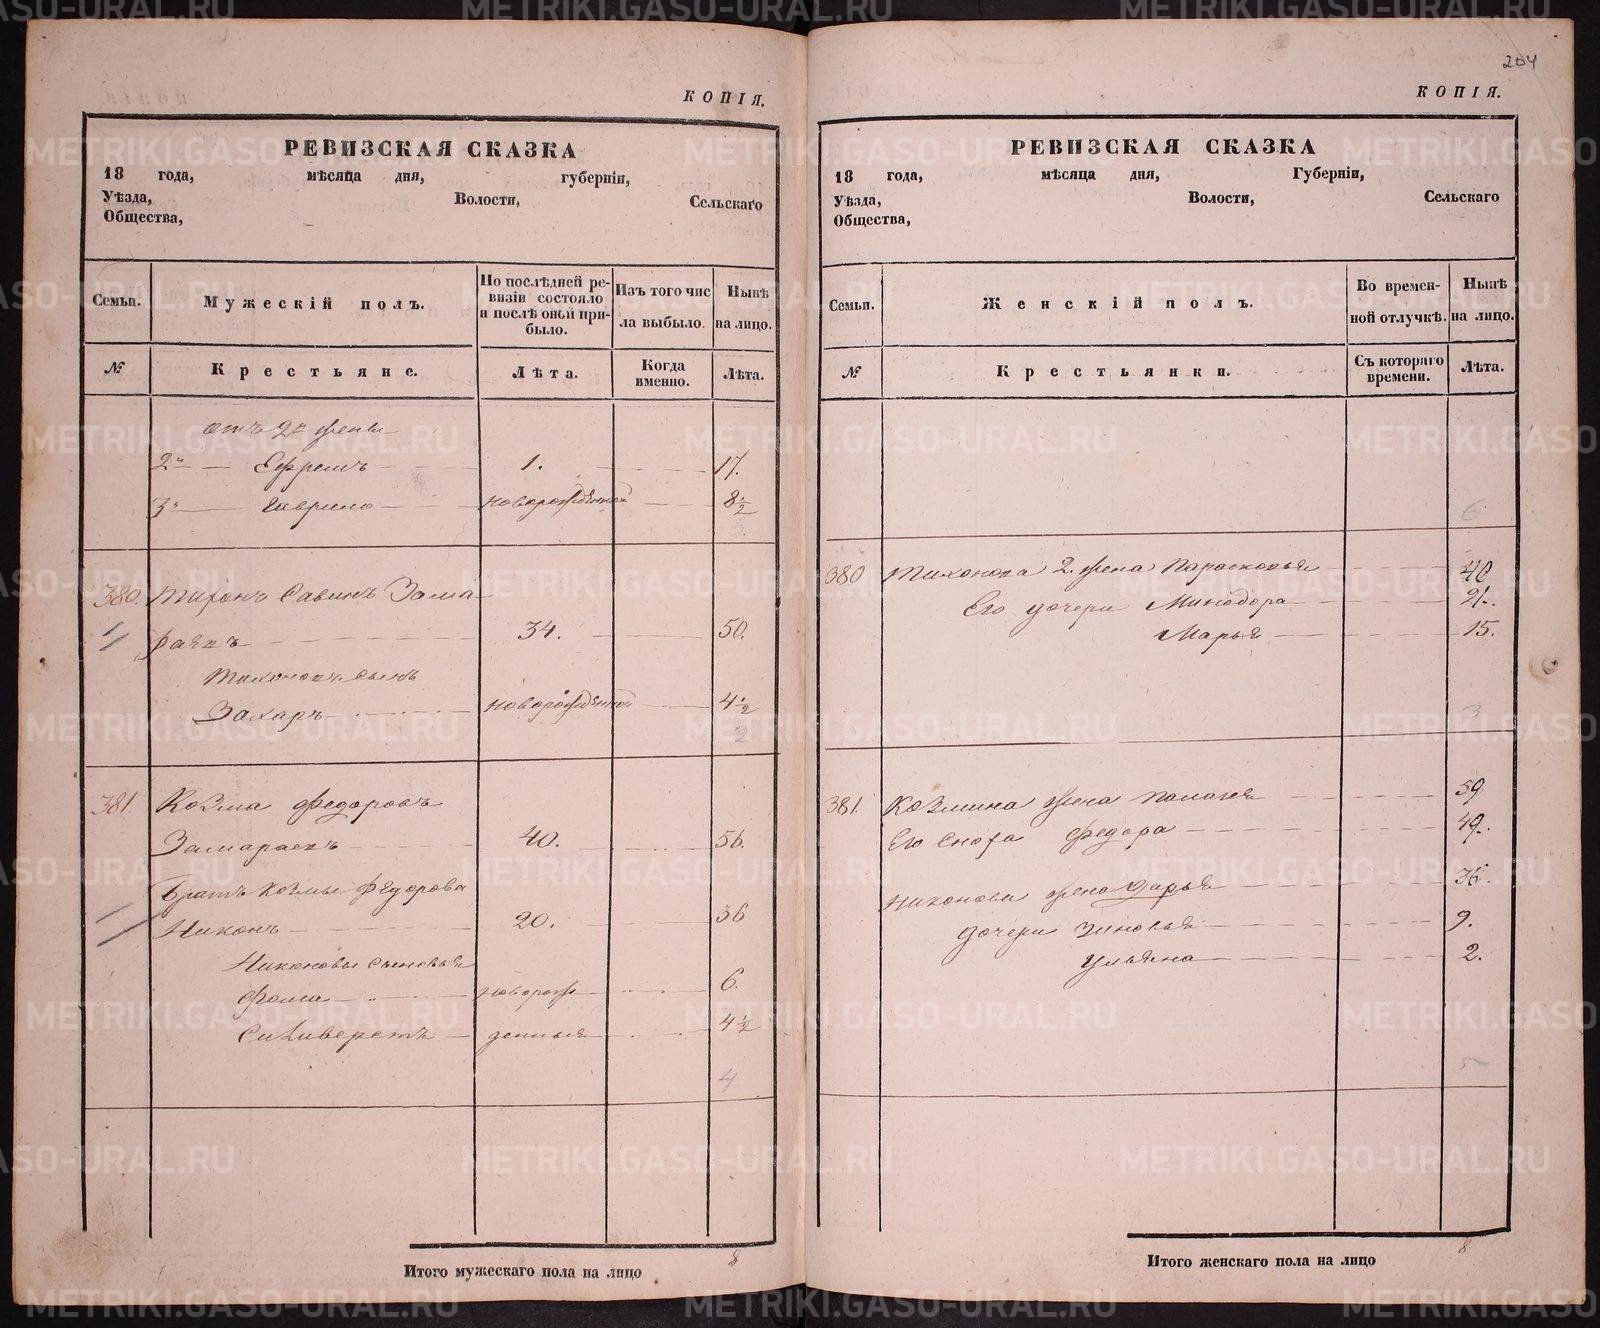 204
КОПІЯ.
РЕВИЗСКАЯ СКАЗКА
18 года, мѣсяца дня, губерніи,
Уѣзда, Волости, Сельскаго
Общества,
Семьи.
Мужескій полъ.
По послѣдней ре-
визіи состояло
и послѣ оной при-
было.
Изъ того чис
ла выбыло.
Нынѣ
на лицо.
№
Крестьяне.
Лѣта.
Когда
именно.
Лѣта.
отъ 2й жены
2й Ефремъ 1. 17.
3й Гаврило новорожденной 8 1/2
3
380. Тихонъ Савинъ Зама
раевъ 34. 50.
Тихоновъ сынъ
Захаръ новорожденной 4 1/2
2
381. Козма Федоровъ
Замараевъ 40. 56.
Братъ Козмы Федорова
Никонъ 20. 36
Никоновы сыновья
Фома новорож 6.
Силиверстъ денныя 4 1/2
4
Итого мужескаго пола на лицо 8
КОПІЯ.
РЕВИЗСКАЯ СКАЗКА
18 года, мѣсяца дня, Губерніи,
Уѣзда, Волости, Сельскаго
Общества,
Семьи.
Женскій полъ.
Во времен-
ной отлучкѣ.
Нынѣ
на лицо.
№
Крестьянки.
Съ котораго
времени.
Лѣта.
6
380 Тихонова 2. жена Парасковья 40
Его дочери Минодора 21.
Марья 15.
3
381. Козмина жена Палагея 59
Его сноха Федора 49.
Никонова жена Дарья 36.
дочери Зиновья 9.
Ульяна 2.
5
Итого женскаго пола на лицо 8
METRIKI.GASO-URAL.RU